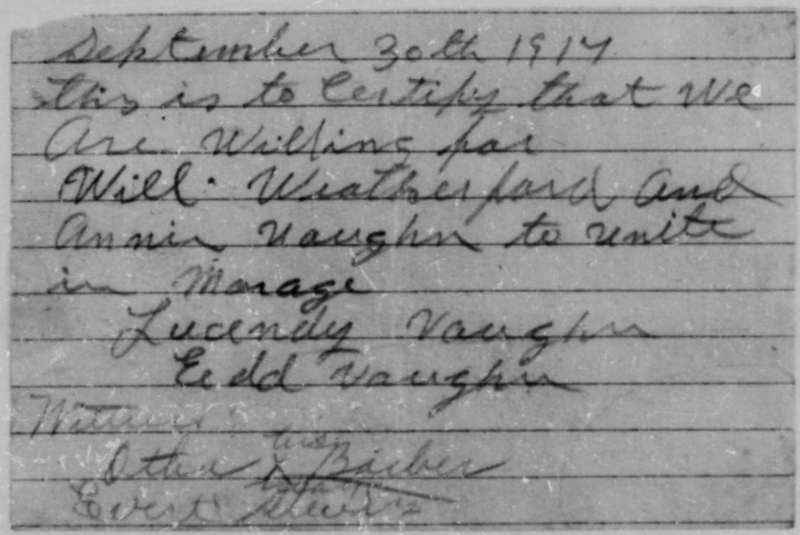 September 30th 1917
this is to Certify that We
Are Willing for
Will. Weatherford and
Annie Vaughn to unite
in Marage
Lucendy Vaughn
Eedd Vaughn
Wittness
his
Otha X Barber
Evert